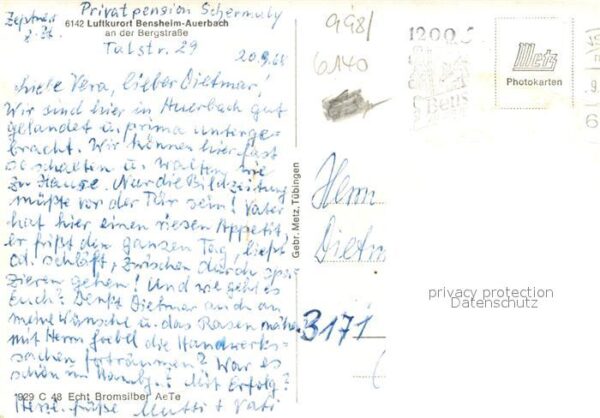 Privatpension Schermuly
Zeptner
z. Zt.
6142 Luftkurort Bensheim-Auerbach
an der Bergstraße
Talstr. 29
20.9.68
Liebe Vera, lieber Dietmar!
Wir sind hier in Auerbach gut
gelandet u. prima unterge-
bracht. Wir können hier fast
so schalten u. walten wie
zu Hause. Nur die Bildzeitung
müßte vor der Tür sein! Vater
hat hier einen riesen Appetit,
er frißt den ganzen Tag, ließt
od. schläft, zwischendurch spa-
zieren gehen! Und wie geht es
Euch? Denkt Dietmar auch an
meine Wünsche u. das Rasen mähen
mit Herrn Goebel die Handwerks-
sachen forträumen? War es
schön in Hambg.? Mit Erfolg?
Herzl. Grüße Mutti + Vati
929 C 48 Echt Bromsilber AeTe
Gebr. Metz, Tübingen
998/
6140
1200
Metz
Photokarten
Herrn
Dietm
privacy protection
Datenschutz
3171